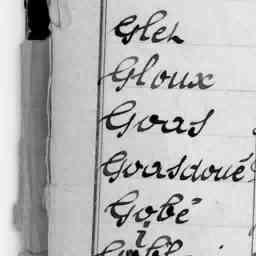 Glex
Gloux
Goas
Goasdoué
Gobé